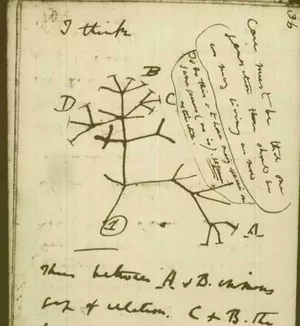 36
I think
Case must be that one
generation then should be
as many living as now
To do this & to have many species in
same genus (as is) requires
extinction
B
D
C
A
1
Thus between A & B. immense
gap of relation. C & B. the